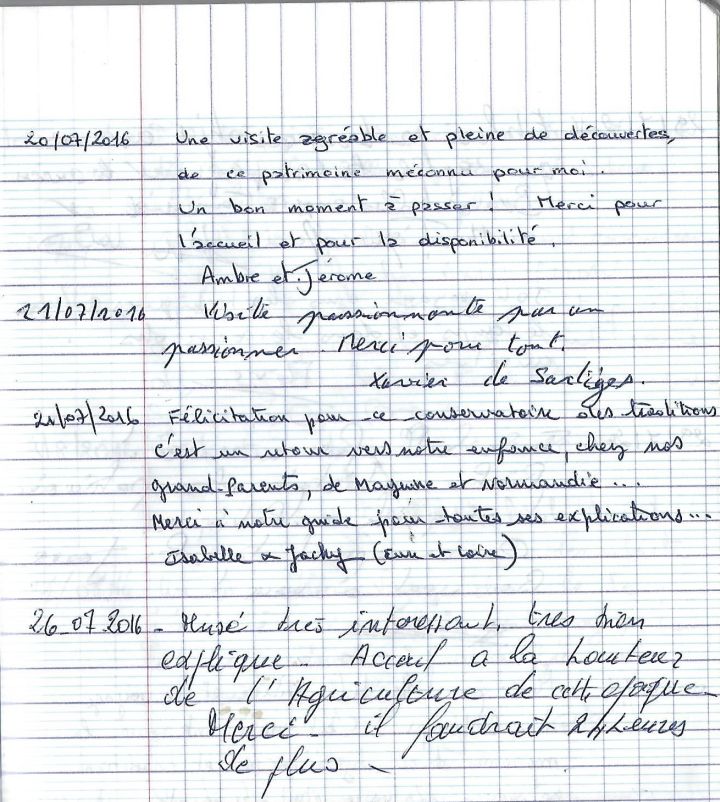 20/07/2016 Une visite agréable et pleine de découvertes,
de ce patrimoine méconnu pour moi.
Un bon moment à passer! Merci pour
l'accueil et pour la disponibilité.
Ambre et Jérome
21/07/2016 Visite passionnante par un
passionner. Merci pour tout.
Xavier de Sarliges.
21/07/2016 Félicitation pour ce conservatoire des traditions
c'est un retour vers notre enfance, chez nos
grand-parents, de Mayenne et Normandie...
Merci à notre guide pour toutes ses explications...
Isabelle & Jacky (Eure et Loire)
26_07.2016 - Musé tres interessant, tres bien
explique - Acceuil a la hauteur
de l'Agriculture de cette epoque -
Merci - il faudrait 24 heures
de plus -